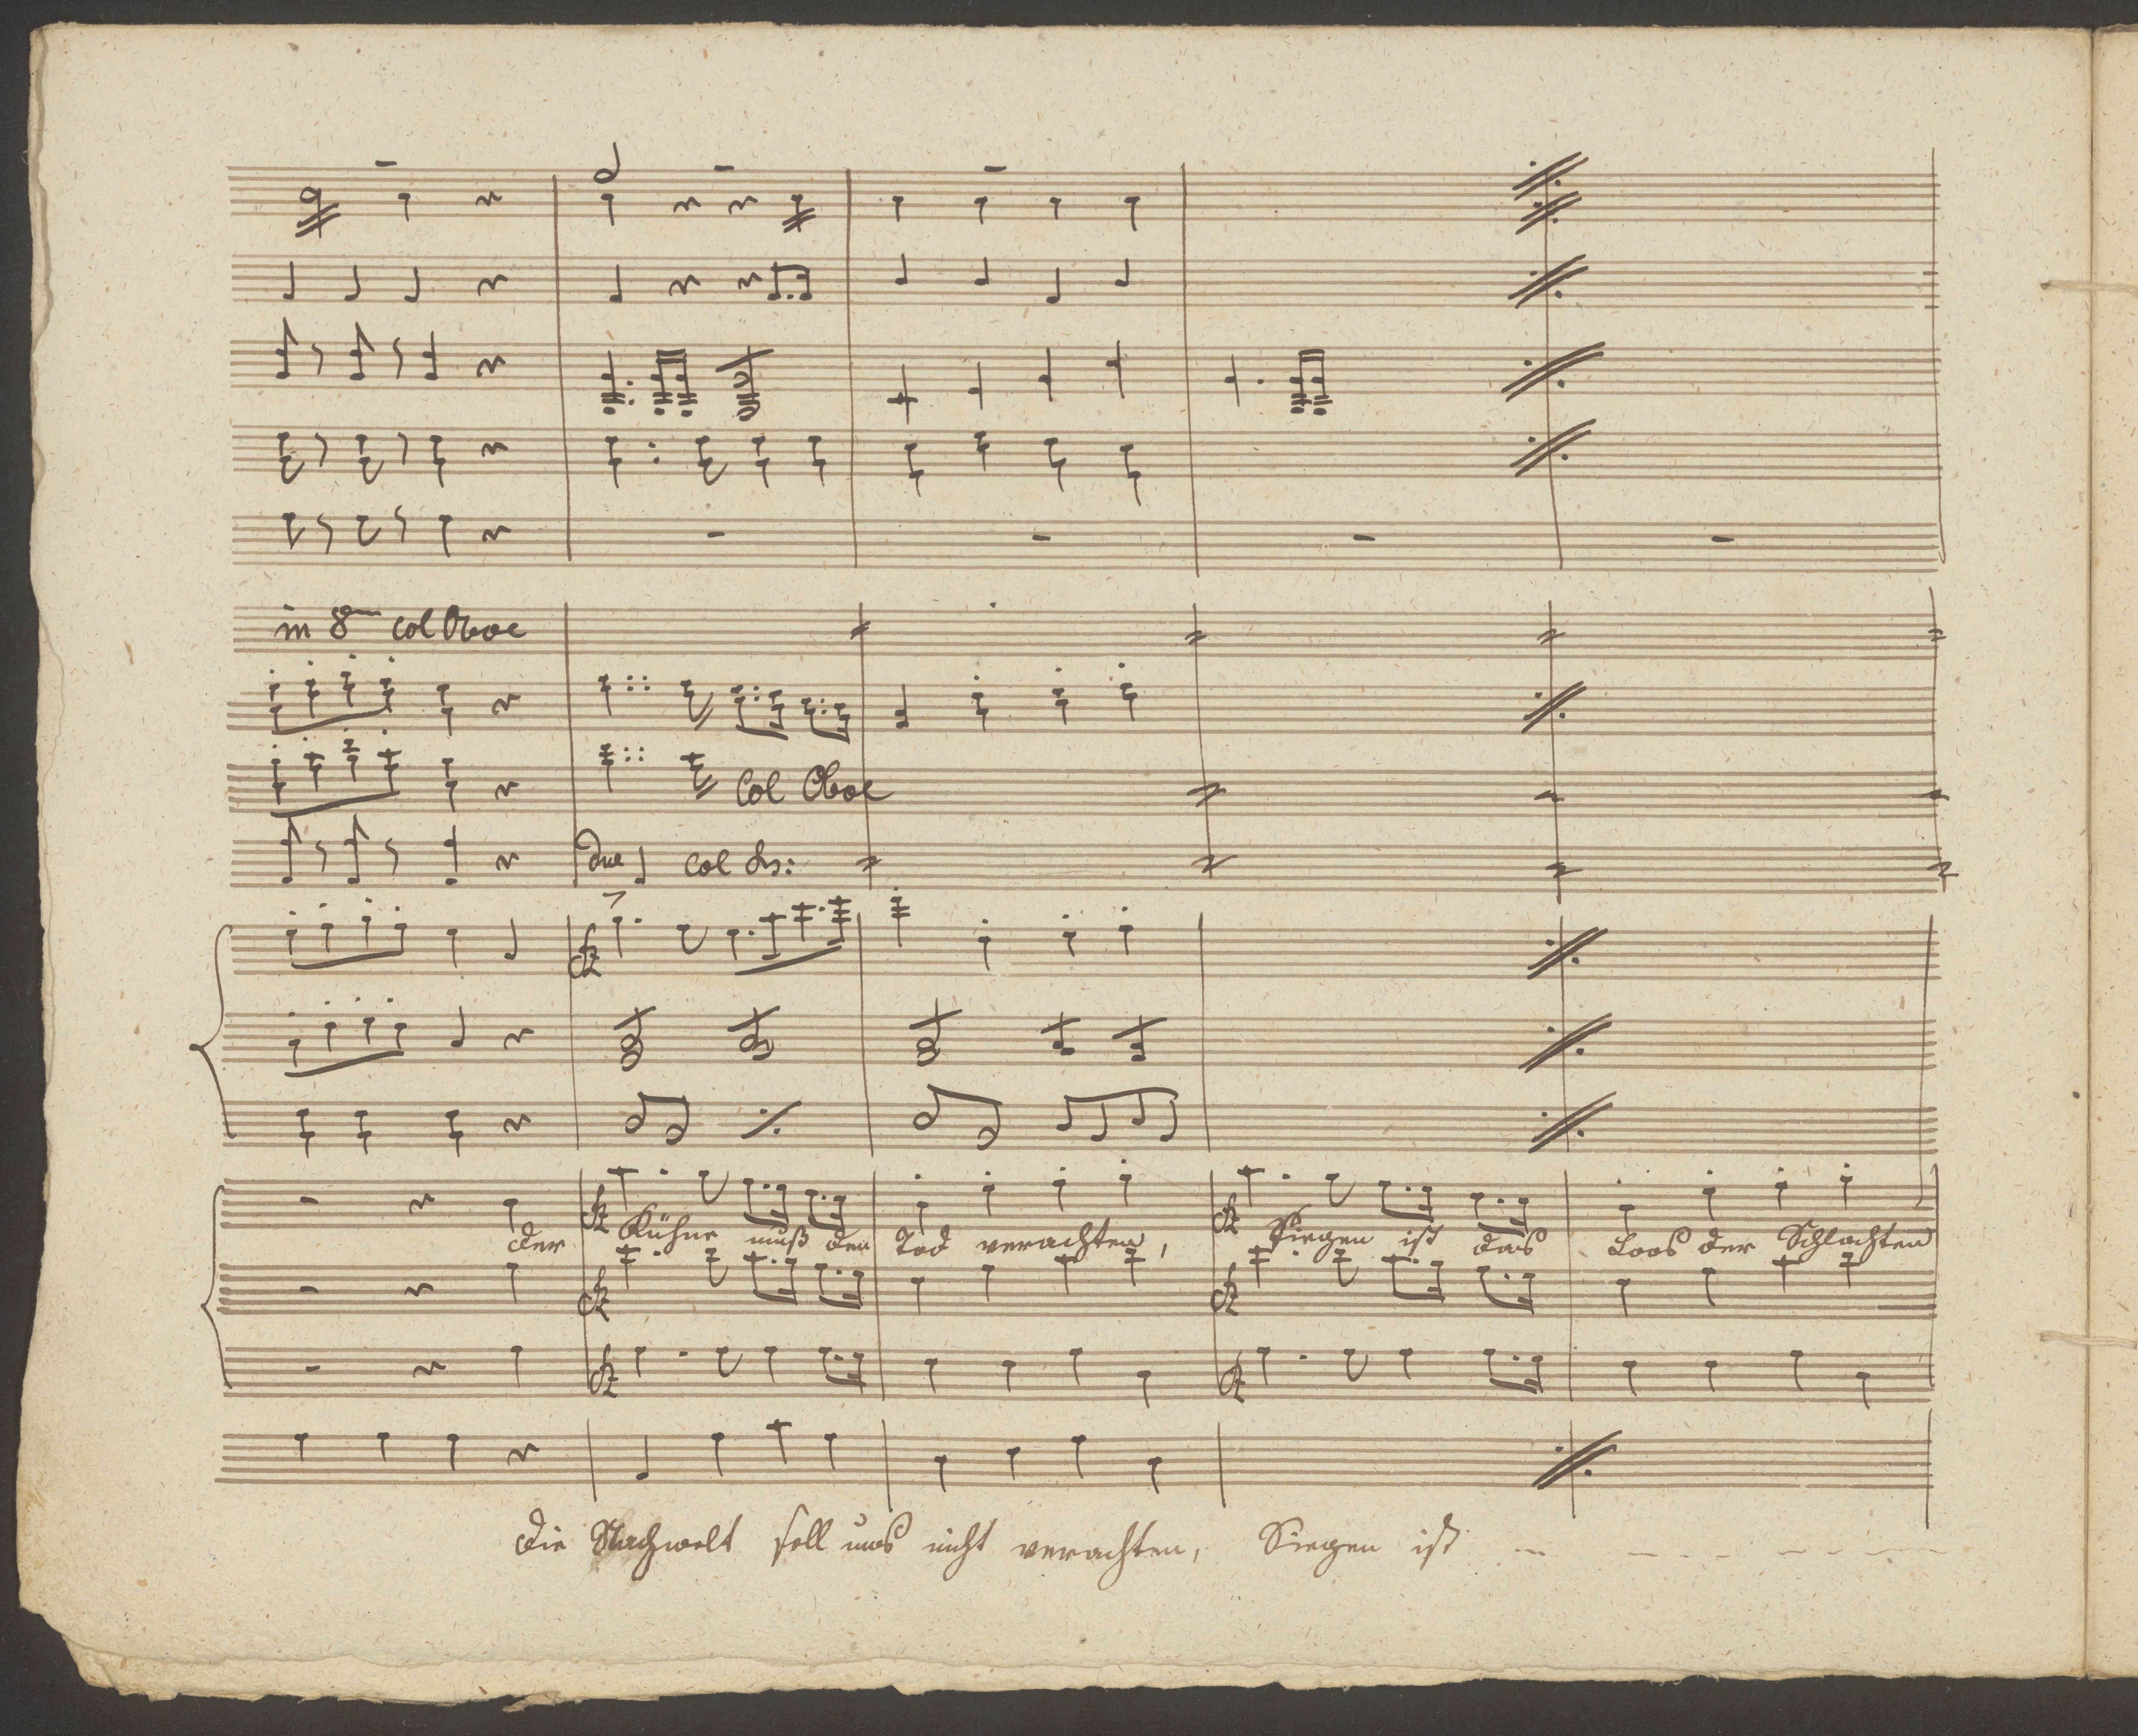 in 8va col Oboe
Col Oboe
due col
der Kühne muß den Tod verachten, Siegen ist das Loos der Schlachten
Die Nachwelt soll uns nicht verachten, Siegen ist